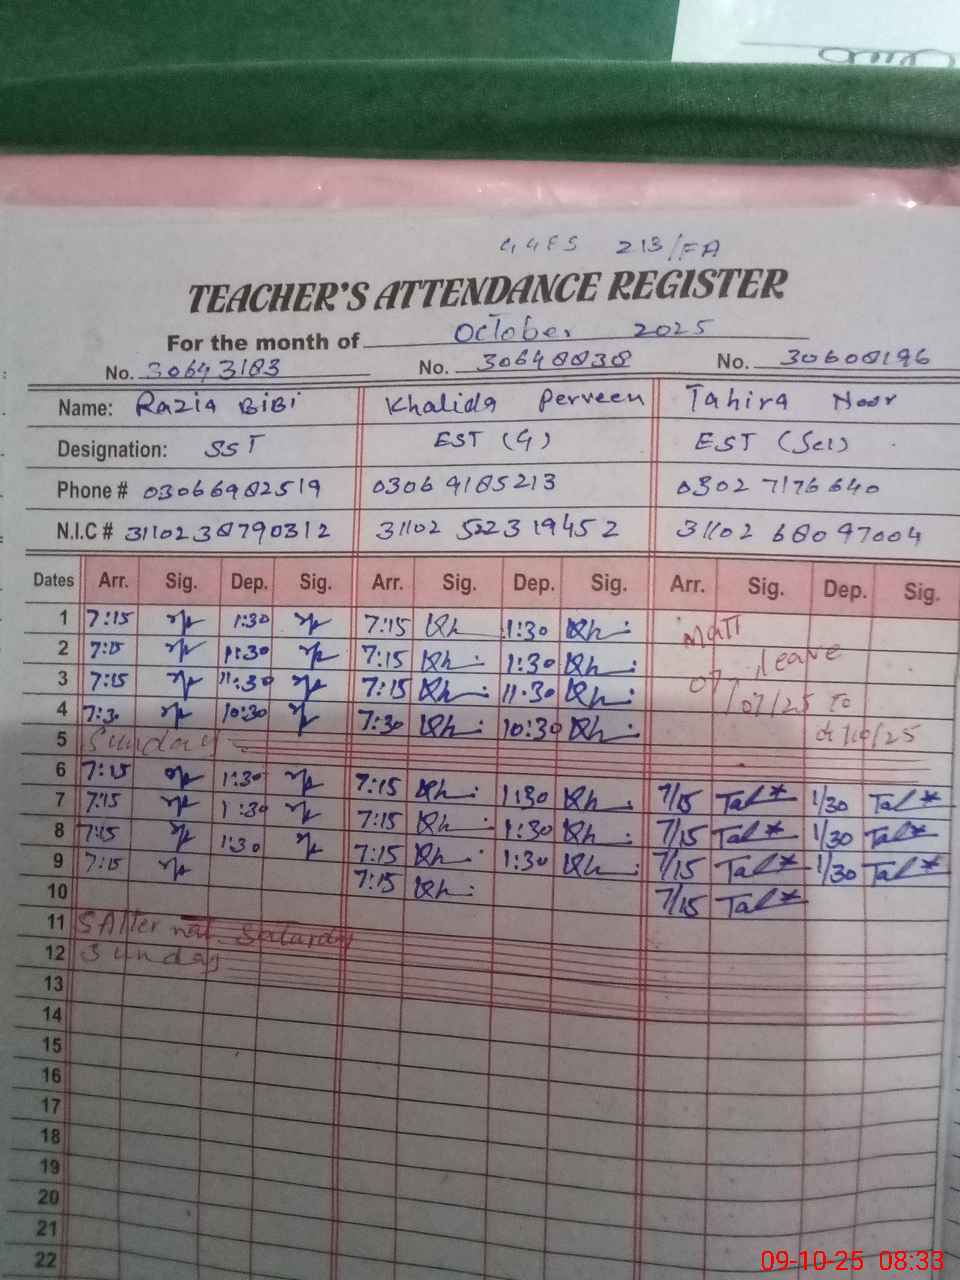 213/FA
TEACHER'S ATTENDANCE REGISTER
For the month of October 2025
No. 30643183 No. 30648838 No. 30608196
Name: Razia BiBi Khalida Perveen Tahira Noor
Designation: SST EST (G) EST (Sci)
Phone # 03066982519 03069185213 03027176640
N.I.C # 3110238790312 31102 5223 19452 31102 68097004
Dates Arr. Sig. Dep. Sig. Arr. Sig. Dep. Sig. Arr. Sig. Dep. Sig.
1 7:15 1:30 7:15 Kh. 1:30 Kh.
2 7:15 1:30 7:15 Kh. 1:30 Kh. leave
3 7:15 11:30 7:15 Kh. 11:30 Kh. 07/25 to
4 7:30 10:30 7:30 Kh. 10:30 Kh. /10/25
5 Sunday
6 7:15 1:30 7:15 Kh. 1:30 Kh. 7/15 1/30
7 7:15 1:30 7:15 Kh. 1:30 Kh. 7/15 1/30
8 7:15 1:30 7:15 Kh. 1:30 Kh. 7/15 1/30
9 7:15 7:15 Kh. 7/15
10
11 Saturday
12 Sunday
13
14
15
16
17
18
19
20
21
22
09-10-25 08:33